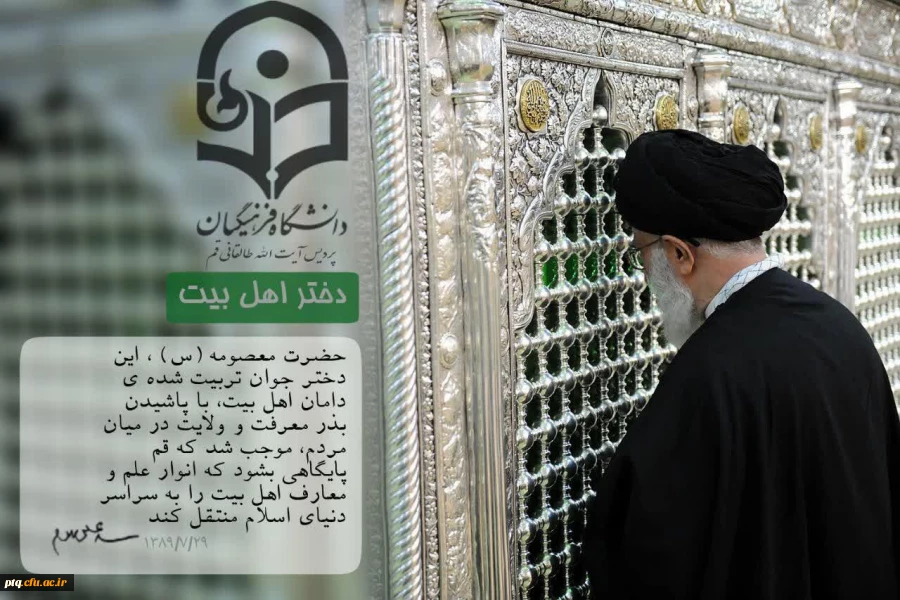 دانشگاه فرهنگیان
پردیس آیت الله طالقانی قم
دختر اهل بیت
حضرت معصومه (س) ، این
دختر جوان تربیت شده ی
دامان اهل بیت، با پاشیدن
بذر معرفت و ولایت در میان
مردم، موجب شد که قم
پایگاهی بشود که انوار علم و
معارف اهل بیت را به سراسر
دنیای اسلام منتقل کند
۱۳۸۹/۷/۲۹
ptq.cfu.ac.ir